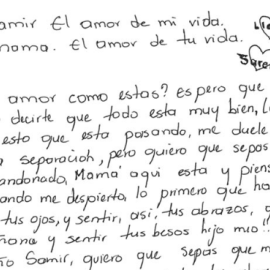 amir El amor de mi vida.
mama. El amor de tu vida.
amor como estas? espero que
decirte que todo esta muy bien,
esto que esta pasando, me duele
separación, pero quiero que sepas
andonado, Mamá aqui esta y piens
ando me despierto, lo primero que ha
tus ojos, y sentir, asi, tus abrazos,
ñana y sentir tus besos hijo mio!!
o Samir, quiero que sepas que m